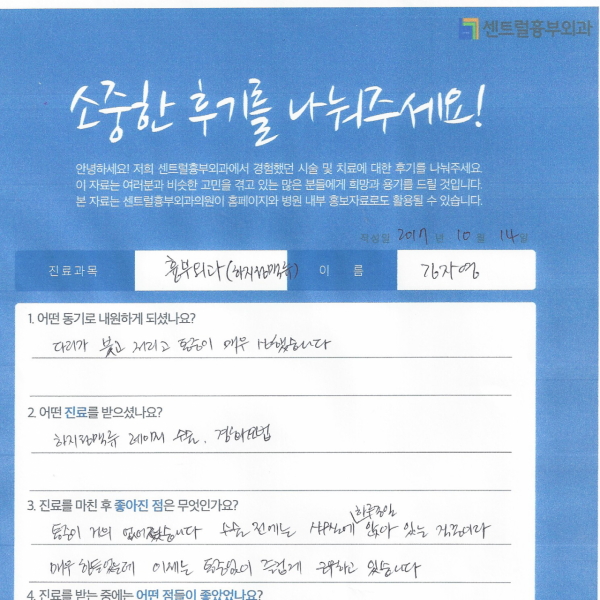 센트럴흉부외과
소중한 후기를 나눠주세요!
안녕하세요! 저희 센트럴흉부외과에서 경험했던 시술 및 치료에 대한 후기를 나눠주세요.
이 자료는 여러분과 비슷한 고민을 겪고 있는 많은 분들에게 희망과 용기를 드릴 것입니다.
본 자료는 센트럴흉부외과의원이 홈페이지와 병원 내부 홍보자료로도 활용될 수 있습니다.
작성일 2017 년 10 월 14 일
진료과목 흉부외과(하지정맥류) 이 름 김자영
1. 어떤 동기로 내원하게 되셨나요?
다리가 붓고 저리고 통증이 매우 심했습니다
2. 어떤 진료를 받으셨나요?
하지정맥류 레이저 수술, 경화요법
3. 진료를 마친 후 좋아진 점은 무엇인가요?
하루종일
통증이 거의 없어졌습니다 수술 전에는 사무실에 앉아 있는 직업이라
매우 힘들었는데 이제는 통증없이 즐겁게 근무하고 있습니다
4. 진료를 받는 중에는 어떤 점들이 좋았었나요?